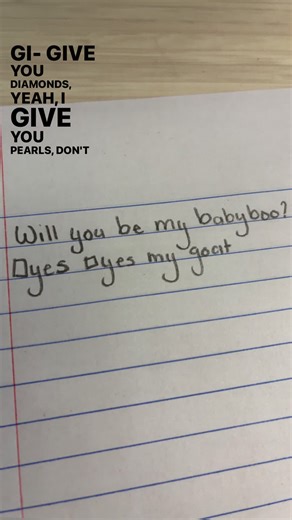 GI- GIVE
YOU
DIAMONDS,
YEAH, I
GIVE
YOU
PEARLS, DON'T
Will you be my babyboo?
☐yes ☐yes my goat